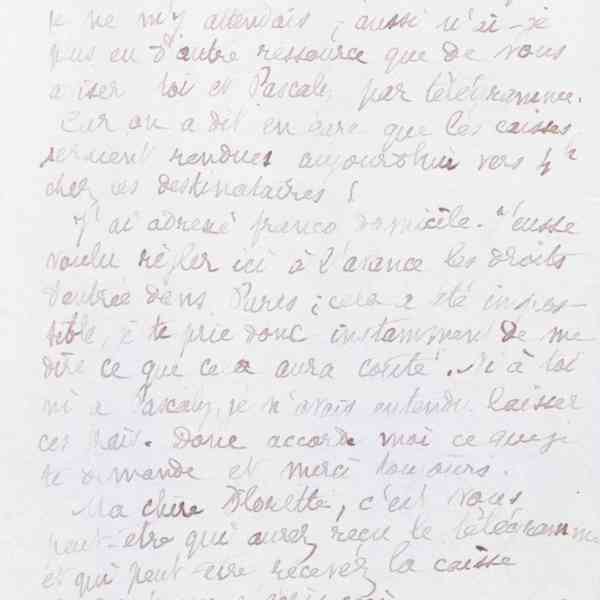 je ne m'y attendais ; aussi n'ai-je
pas eu d'autre ressource que de vous
aviser toi et Pascaly par télégramme.
Car on a dit en gare que les caisses
seraient rendues aujourd'hui vers 4h
chez les destinataires !
J'ai adressé franco domicile. J'eusse
voulu régler ici à l'avance les droits
d'entrée dans Paris ; cela a été impos-
sible, je te prie donc instamment de me
dire ce que ce a aura coûté. Ni à toi
ni à Pascaly, je n'avais entendu laisser
ces frais. Donc accorde moi ce que je
te demande et merci toujours.
Ma chère Florette, c'est vous
peut-être qui aurez reçu le télégramme
et qui peut-être recevez la caisse